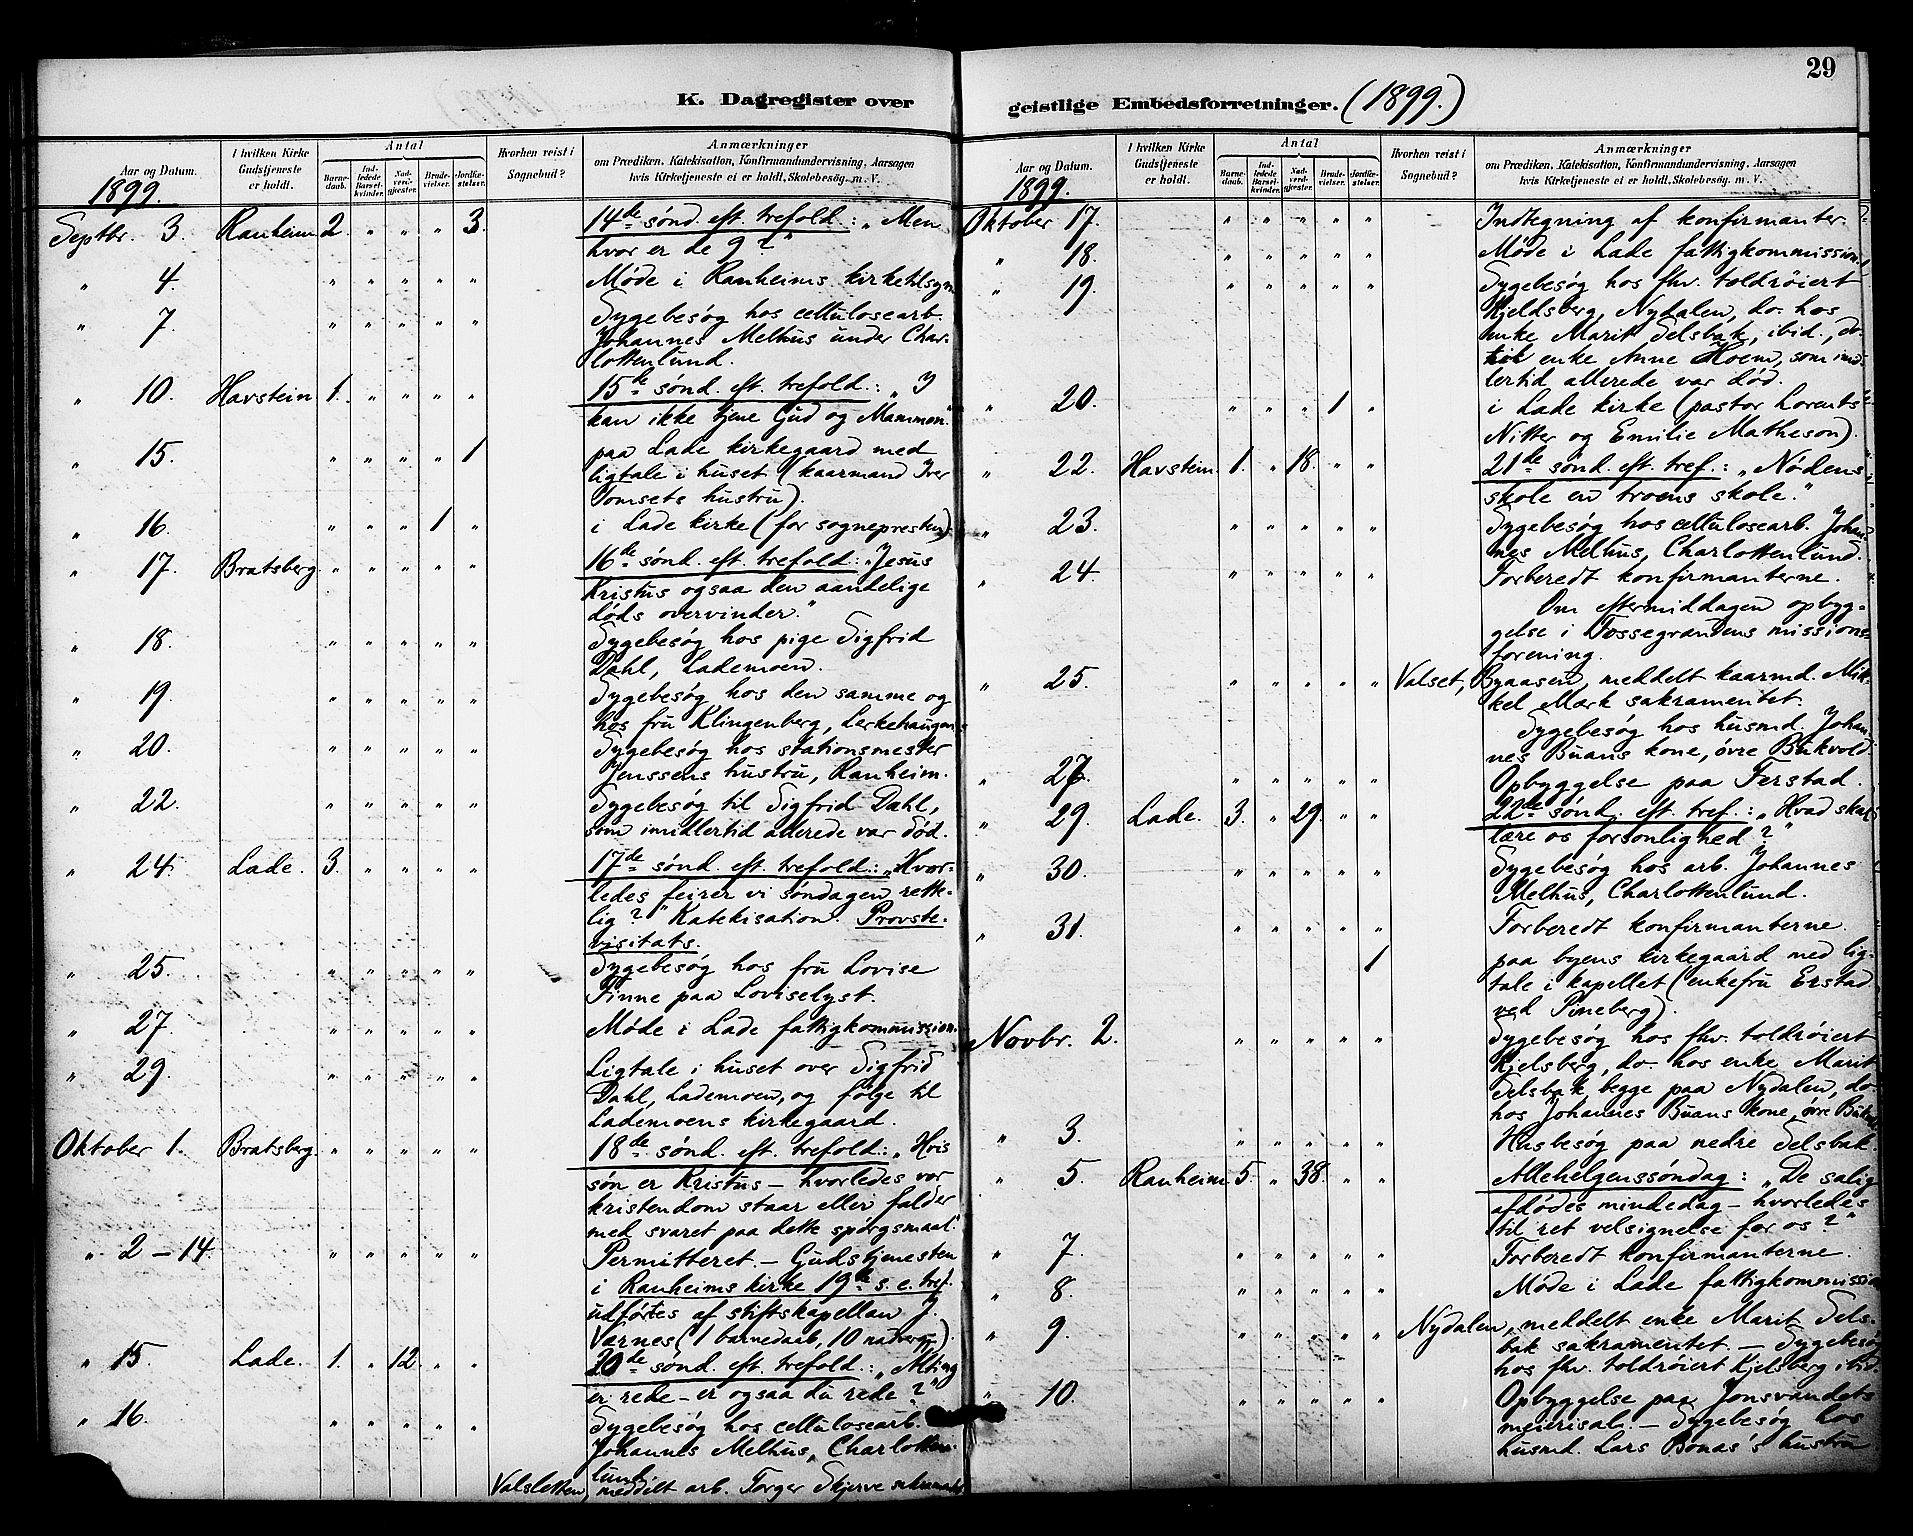 K. Dagregister over
Aar og Datum.
I hvilken Kirke Gudstjeneste er holdt.
Antal
Barnedaab.
Indledede Barselkvinder.
Nadverdgjester.
Brudevielser.
Jordfæstelser.
Hvorhen reist i Sognebud?
Anmærkninger
om Prædiken, Katekisation, Konfirmandundervisning, Aarsagen
hvis Kirketjeneste ei er holdt, Skolebesøg, m. V.
1899.
Septbr. 3. Ranheim 2. " " " 3. 14de sønd. eft. trefold.: „Men
hvor er de 9?"
" 4. " " " " " Møde i Ranheims kirketilsyn
" 7. " " " " " Sygebesøg hos cellulosearb.
Johannes Melhus under Char-
lottenlund.
" 10. Havstein 1. " " " " 15de sønd. eft. trefold.: „I
kan ikke tjene Gud og Mammon."
" 15. " " " " 1 paa Lade kirkegaard med
ligtale i huset (kaarmand Iver
Tomsets hustru).
" 16. " " " 1 " i Lade kirke (for sognepresten).
" 17. Bratsberg. " " " " " 16de sønd. eft. trefold.: „Jesus
Kristus ogsaa den aandelige
døds overvinder."
" 18. " " " " " Sygebesøg hos pige Sigfrid
Dahl, Lademoen.
" 19. " " " " " Sygebesøg hos den samme og
hos fru Klingenberg, Lerkehaugen.
" 20. " " " " " Sygebesøg hos stationsmester
Jenssens hustru, Ranheim.
" 22. " " " " " Sygebesøg til Sigfrid Dahl,
som imidlertid allerede var død.
" 24. Lade. 3. " " " " 17de sønd. eft. trefold.: „Hvor-
ledes feirer vi søndagen rette-
lig?" Katekisation. Provste-
visitats.
" 25. " " " " " Sygebesøg hos fru Lovise
Finne paa Loviselyst.
" 27. " " " " " Møde i Lade fattigkommission.
" 29. " " " " " Ligtale i huset over Sigfrid
Dahl, Lademoen, og følge til
Lademoens kirkegaard.
Oktober 1. Bratsberg. " " " " " 18de sønd. eft. trefold.: „Hvis
søn er Kristus – hvorledes vor
kristendom staar eller falder
med svaret paa dette spørgsmaal."
" 2–14. " " " " " Permitteret. – Gudstjenesten
i Ranheims kirke 19de s. e. tref.
udførtes af stiftskapellan J.
Værnes (1 barnedaab, 10 nadverg.).
" 15. Lade. 1. " 12. " " 20de sønd. eft. trefold.: „Alting
er rede – er ogsaa du rede?"
" 16. " " " " " Sygebesøg hos cellulosearb.
Johannes Melhus, Charlotten-
lund.
Valsletten, meddelt arb. Torger Skjerve
29
geistlige Embedsforretninger. (1899.)
Aar og Datum.
I hvilken Kirke Gudstjeneste er holdt.
Antal
Barnedaab.
Indledede Barselkvinder.
Nadverdgjester.
Brudevielser.
Jordfæstelser.
Hvorhen reist i Sognebud?
Anmærkninger
om Prædiken, Katekisation, Konfirmandundervisning, Aarsagen
hvis Kirketjeneste ei er holdt, Skolebesøg, m. V.
1899.
Oktober 17. " " " " " Indtegning af konfirmanter.
" 18. " " " " " Møde i Lade fattigkommission.
" 19. " " " " " Sygebesøg hos fhv. toldrøiert
Kjeldsberg, Nydalen, do. hos
enke Marit Selsbak, ibid., do.
til enke Anne Hoem, som imid-
lertid allerede var død.
" 20. " " " 1 " i Lade kirke (pastor Lorents
Nitter og Emilie Matheson).
" 22. Havstein. 1. " 18. " " 21de sønd. eft. tref.: „Nødens
skole en troens skole."
" 23. " " " " " Sygebesøg hos cellulosearb. Johan-
nes Melhus, Charlottenlund.
" 24. " " " " " Forberedt konfirmanterne.
Om eftermiddagen opbyg-
gelse i Fossegrandens missions-
forening.
" 25. " " " " " Valset, Byaasen, meddelt kaarmd. Mik-
kel Mærk sakramentet.
Sygebesøg hos husmd. Johan-
nes Buans kone, øvre Bukvold
" 27. " " " " " Opbyggelse paa Ferstad.
" 29. Lade. 3. " 29. " " 22de sønd. eft. tref.: „Hvad skal
lære os forsonlighed?"
" 30. " " " " " Sygebesøg hos arb. Johannes
Melhus, Charlottenlund.
" 31. " " " " " Forberedt konfirmanterne.
1 paa byens kirkegaard med lig-
tale i kapellet (enkefru Erstad
ved Pineberg).
Novbr. 2. " " " " " Sygebesøg hos fhv. toldrøiert
Kjelsberg, do. hos enke Marit
Selsbak begge paa Nydalen, do.
hos Johannes Buans kone, øvre
" 3. " " " " " Husbesøg paa nedre Selsbak.
" 5. Ranheim. 5. " 38. " " Allehelgenssøndag: „De salig
afdødes mindedag – hvorledes
til ret velsignelse for os?"
" 7. " " " " " Forberedt konfirmanterne.
" 8. " " " " " Møde i Lade fattigkommission
" 9. " " " " " Nydalen, meddelt enke Marit Sels-
bak sakramentet. – Sygebesøg
hos fhv. toldrøiert Kjelsberg ibid.
" 10. " " " " " Opbyggelse paa Jonsvandets
meierisal. – Sygebesøg hos
husmd. Lars Bonas's hustru